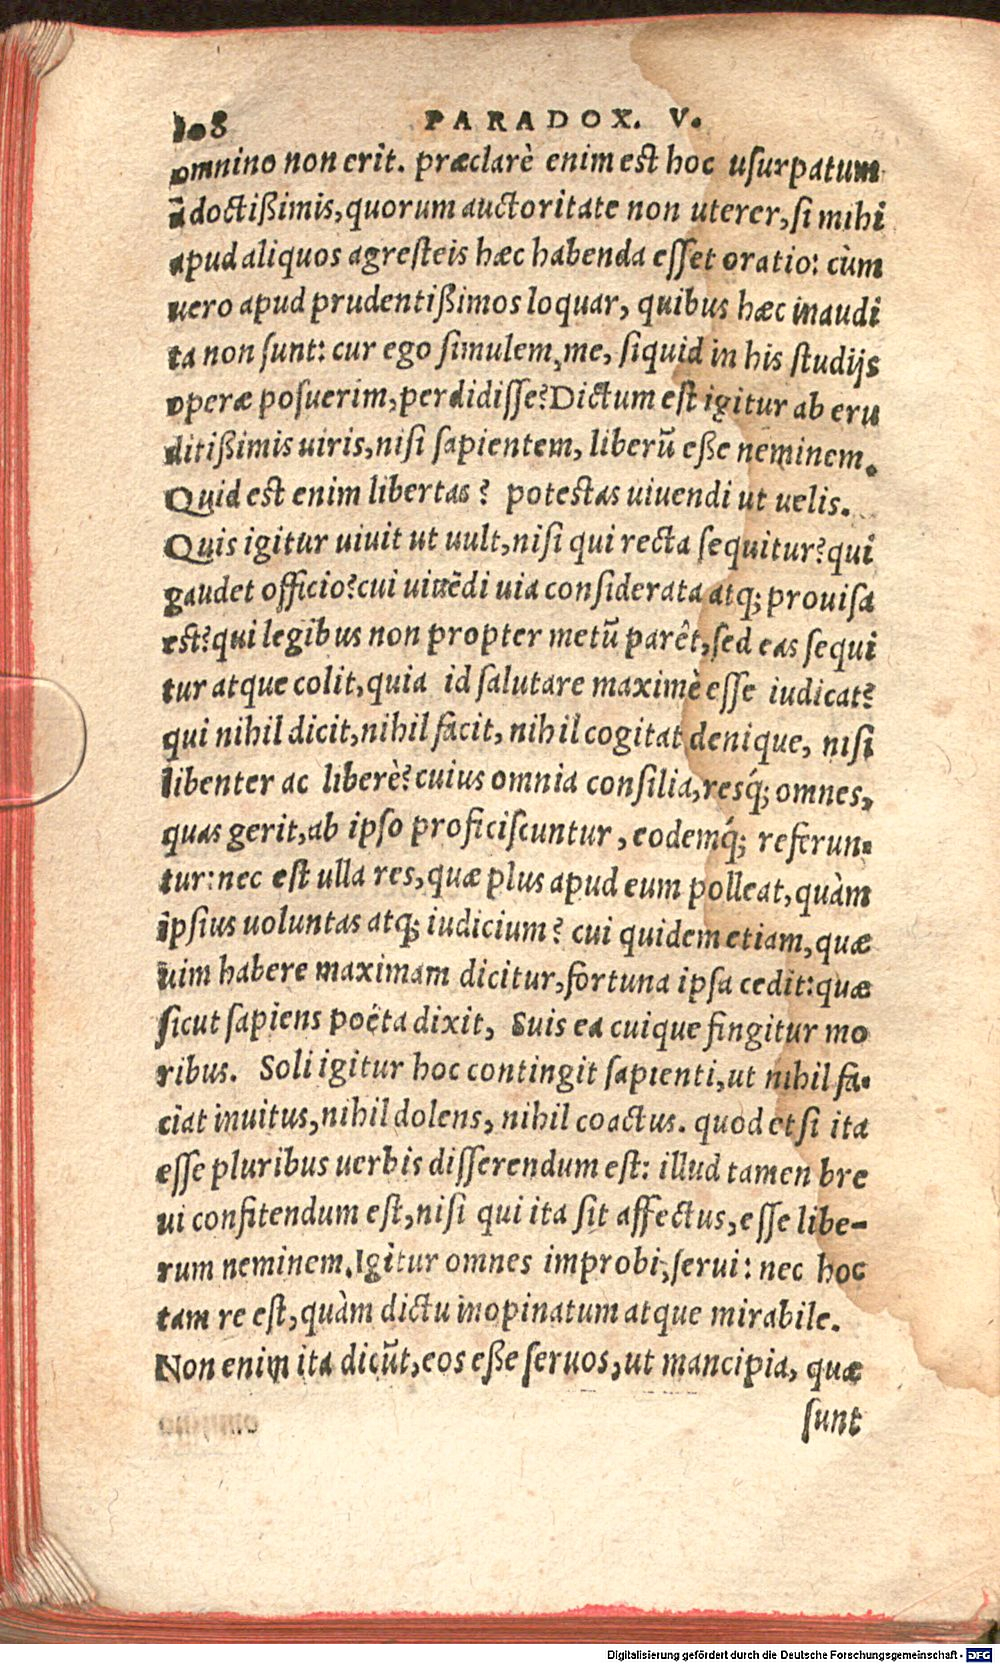 108 PARADOX. V.
omnino non erit. præclarè enim est hoc uſurpatum
à doctißimis, quorum auctoritate non uterer, ſi mihi
apud aliquos agreſteis hæc habenda eſſet oratio: cùm
uero apud prudentißimos loquar, quibus hæc inaudi
ta non ſunt: cur ego ſimulem, me, ſiquid in his ſtudijs
operæ poſuerim, perdidiſſe? Dictum eſt igitur ab eru
ditißimis uiris, niſi ſapientem, liberũ eße neminem.
Quid est enim libertas? potestas uiuendi ut uelis.
Quis igitur uiuit ut uult, niſi qui recta ſequitur? qui
gaudet officio? cui uiuẽdi uia conſiderata atq; prouiſa
est? qui legibus non propter metũ parêt, ſed eas ſequi
tur atque colit, quia id ſalutare maximè eſſe iudicat?
qui nihil dicit, nihil facit, nihil cogitat denique, niſi
libenter ac liberè? cuius omnia conſilia, resq́; omnes,
quas gerit, ab ipſo proficiſcuntur, eodemq́; referun-
tur: nec eſt ulla res, quæ plus apud eum polleat, quàm
ipſius uoluntas atq; iudicium? cui quidem etiam, quæ
uim habere maximam dicitur, fortuna ipſa cedit: quæ
ſicut ſapiens poëta dixit, Suis ea cuique fingitur mo
ribus. Soli igitur hoc contingit ſapienti, ut nihil fa-
ciat inuitus, nihil dolens, nihil coactus. quod et ſi ita
eſſe pluribus uerbis diſſerendum eſt: illud tamen bre
ui confitendum eſt, niſi qui ita ſit affectus, eſſe libe-
rum neminem. Igitur omnes improbi, ſerui: nec hoc
tam re eſt, quàm dictu inopinatum atque mirabile.
Non enim ita dicũt, eos eße ſeruos, ut mancipia, quæ
ſunt
Digitalisierung gefördert durch die Deutsche Forschungsgemeinschaft - DFG